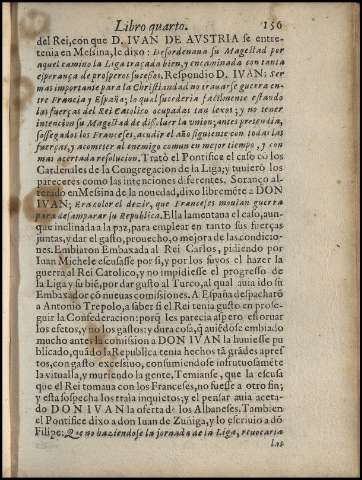 Libro quarto. 156
del Rei, con que D. IVAN DE AVSTRIA se entre-
tenia en Messina, le dixo: Desordenaua su Magestad por
aquel camino la Liga traçada bien, y encaminada con tanta
esperança de prosperos sucessos. Respondio D. IVAN: Ser
mas importante para la Christiandad no trauarse guerra en-
tre Francia y España; lo qual sucederia facilmente estando
las fuerças del Rei Catolico ocupadas tan lexos; y no tener
intencion su Magestad de dissoluer la vnion; antes pretendia,
sossegados los Franceses, acudir el año siguiente con todas las
fuerças, y acometer al enemigo comun en mejor tiempo, y con
mas acertada resolucion. Tratò el Pontifice el caso cõ los
Cardenales de la Congregacion de la Liga; y tuuierõ los
pareceres como las intenciones diferentes. Soranço al-
terado en Messina de la nouedad, dixo libremẽte a DON
IVAN; Era color el dezir, que Franceses mouian guerra
para desamparar su Republica. Ella lamentaua el caso, aun-
que inclinada a la paz, para emplear en tanto sus fuerças
juntas, y dar el gasto, prouecho, o mejora de las condicio-
nes. Embiaron Embaxada al Rei Carlos, pidiendo por
Iuan Michele escusasse por si, y por los suyos el hazer la
guerra al Rei Catolico, y no impidiesse el progresso de
la Liga y su biẽ, por dar gusto al Turco, al qual auia ido su
Embaxador cõ nueuas comissiones. A España despacharõ
a Antonio Trepolo, a saber si el Rei tenia gusto en prose-
guir la Confederacion: porq̃ les parecia aspero estoruar
los efetos, y no los gastos: y dura cosa, q̃ auiẽdose embiado
mucho ante la comission a DON IVAN la huuiesse pu
blicado, quãdo la Republica tenia hechos tã grãdes apres
tos, con gasto excessiuo, consumiendose infrutuosamẽte
la vitualla, y muriendo la gente. Temianse, que la escusa
que el Rei tomaua con los Franceses, no fuesse a otro fin;
y esta sospecha los traia inquietos; y el pensar auia aceta-
do DON IVAN la oferta de los Albaneses. Tambien
el Pontifice dixo a don Iuan de Zuñiga, y lo escriuio a dõ
Filipe: Que no haziendose la jornada de la Liga, reuocaria
las